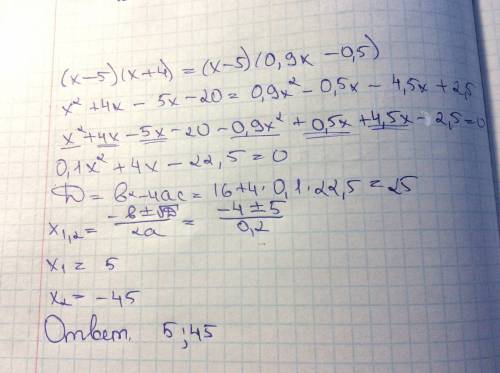 (x-5)(x+4) = (x-5)(0,9x -0,5)
x² +4x - 5x -20 = 0,9x² - 0,5x - 4,5x + 2,5
x² +4x - 5x -20 - 0,9x² + 0,5x + 4,5x - 2,5 = 0
0,1x² +4x - 22,5 = 0
D = в²-4ac = 16 + 4 · 0,1 · 22,5 = 25
x₁,₂ = (-в ± √D)/2a = (-4 ± 5)/0,2
x₁ = 5
x₂ = -45
Ответ. 5 ; 45